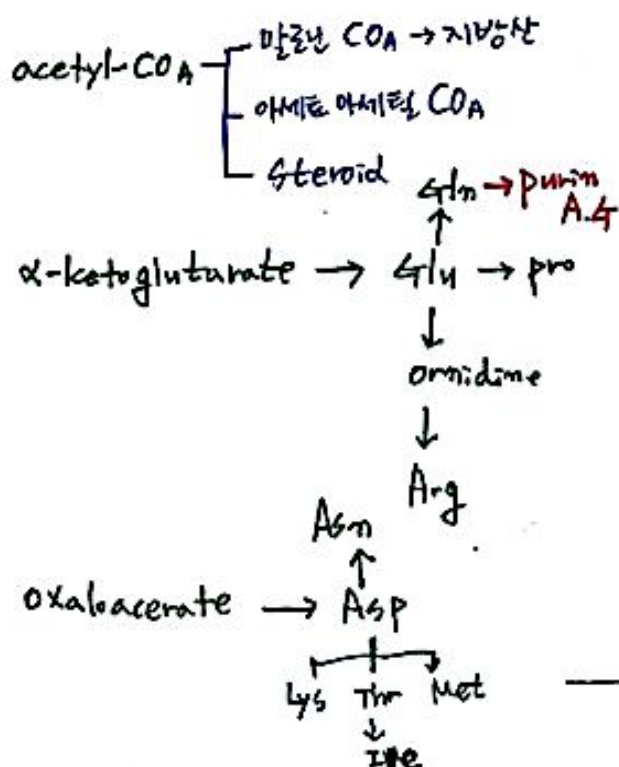 말로닌 COA → 지방산
acetyl-COA
아세토아세틸 COA
Steroid
Gln → purin
A.G
α-ketogluturate → Glu → pro
ornidine
Arg
Asn
oxaloacerate → Asp
Lys Thr Met
Ile